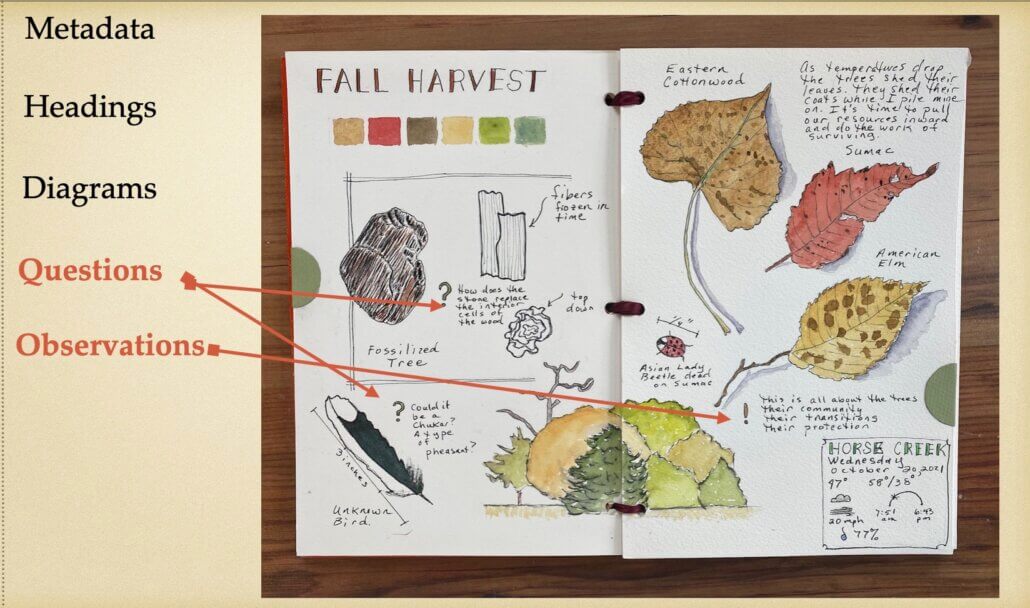 Metadata
Headings
Diagrams
Questions
Observations
FALL HARVEST
fibers
frozen in
time
? How does the
stone replace
the interior
cells of
the wood
top
down
Fossilized
Tree
? Could it
be a
Chukar?
A type
of
pheasant?
3 inches
Unknown
Bird.
Eastern
Cottonwood
As temperatures drop
the trees shed their
leaves. They shed their
coats while I pile mine
on. It's time to pull
our resources inward
and do the work of
surviving.
Sumac
American
Elm
1/4"
Asian Lady
Beetle dead
on Sumac
! This is all about the trees
Their community
Their transitions
Their protection
HORSE CREEK
Wednesday
October 20, 2021
47° 58°/38°
7:51 6:43
20 mph am pm
77%